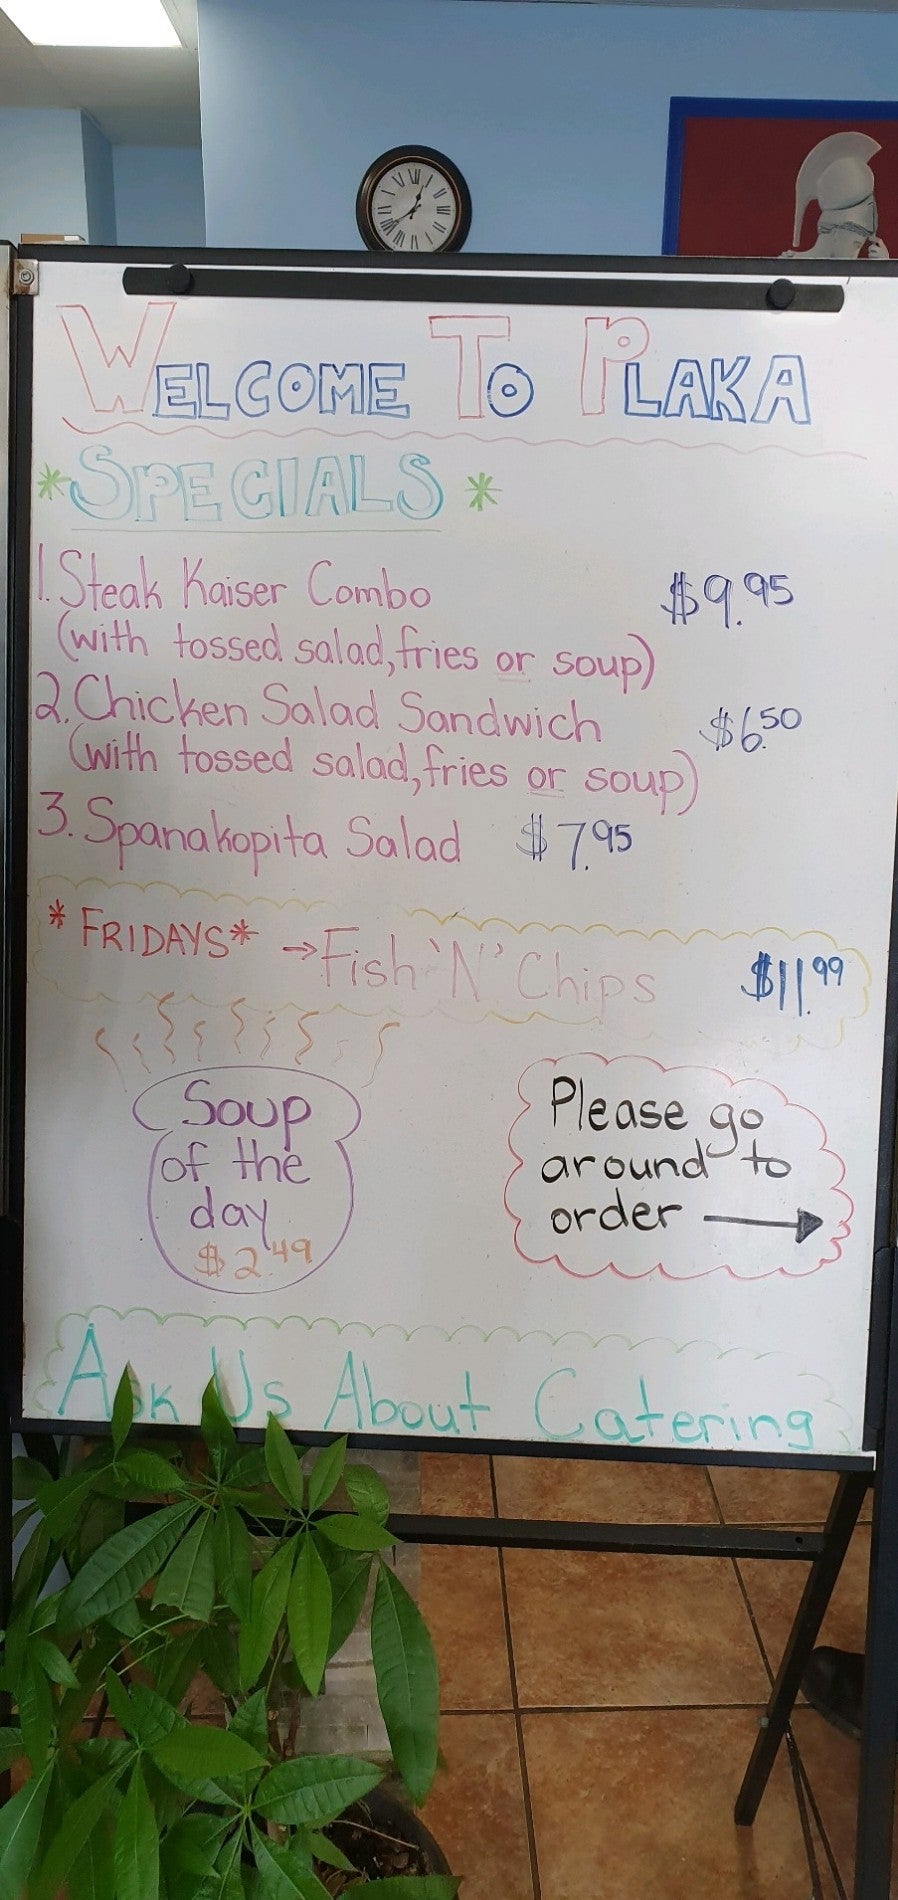 WELCOME TO PLAKA
*SPECIALS*
1. Steak Kaiser Combo $9.95
(with tossed salad, fries or soup)
2. Chicken Salad Sandwich $6.50
(with tossed salad, fries or soup)
3. Spanakopita Salad $7.95
*FRIDAYS* → Fish 'N' Chips $11.99
Soup
of the
day
$2.49
Please go
around to
order →
Ask Us About Catering